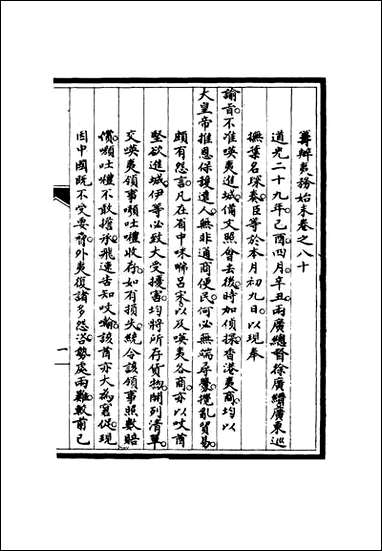 籌辦夷務始末卷之八十
道光二十九年己酉四月辛丑兩廣總督徐廣縉廣東巡
撫葉名琛奏臣等於本月初九日以現奉
諭旨不准暎夷進城備文照會去後時加偵探香港夷商均以
大皇帝推恩保護遠人無非通商便民何必無端尋釁攪亂貿易
頗有怨言凡在省中咪唎呂宋以及暎夷各商亦以㕭酋
堅欲進城伊等必致大受擾害均將所存貨物開列清單
交暎夷領事嘚吐㗎收存如有損失統令該領事照數賠
償嘚吐㗎不敢擔承飛速告知㕭喻該酋亦大為窘促現
因中國既不受要脅外夷復諸多怨咨勢處兩難較前已
一